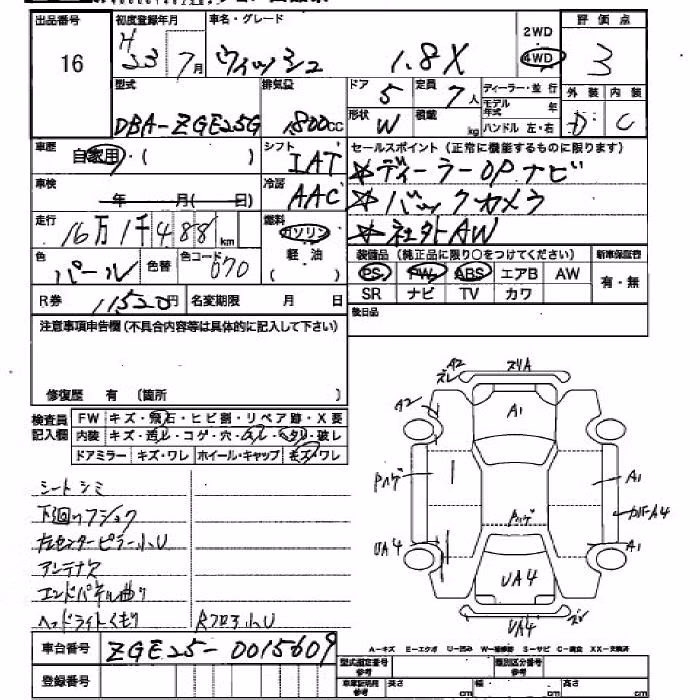 出品番号
16
初度登録年月
H
23 7月
車名・グレード
ウィッシュ 1.8X
2WD
4WD
評価点
3
外装 内装
D C
型式
DBA-ZGE25G
排気量
1800cc
ドア
5
定員
7人
形状
W
積載
kg
ディーラー・並行
モデル年式 年
ハンドル 左・右
車歴
自家用・( )
シフト
IAT
セールスポイント(正常に機能するものに限ります)
☆ディーラーOPナビ
☆バックカメラ
☆社外AW
車検
年 月( 日)
冷房
AAC
走行
16万1千488km
燃料
ガソリン
軽・油
( )
色
パール
色替
色コード
070
装備品(純正品に限り○をつけてください)
PS PW ABS エアB AW
SR ナビ TV カワ
新車保証書
有・無
R券
11520円
名変期限 月 日
後日品
注意事項申告欄(不具合内容等は具体的に記入して下さい)
修復歴 有 (箇所 )
検査員記入欄
FW キズ・飛石・ヒビ割・リペア跡・X要
内装 キズ・汚レ・コゲ・穴・スレ・ヘタリ・破レ
ドアミラー キズ・ワレ ホイール・キャップ キズ・ワレ
シートシミ
下回リフショク
左センターピラー小U
アンテナX
エンドパネル曲り
ヘッドライトくもり
Rフロア小U
A2
ズレ
スリA
A2
A1
Pハゲ
A1
Pハゲ
A1
UA4
UA4
UA4
ズレ
車台番号
ZGE25-0015609
登録番号
A-キズ E-エクボ U-凹み W-補修跡 S-サビ C-腐食 XX-交換済
型式指定番号
参考
類別区分番号
参考
車庫証明用
参考
長さ cm 幅 cm 高さ cm